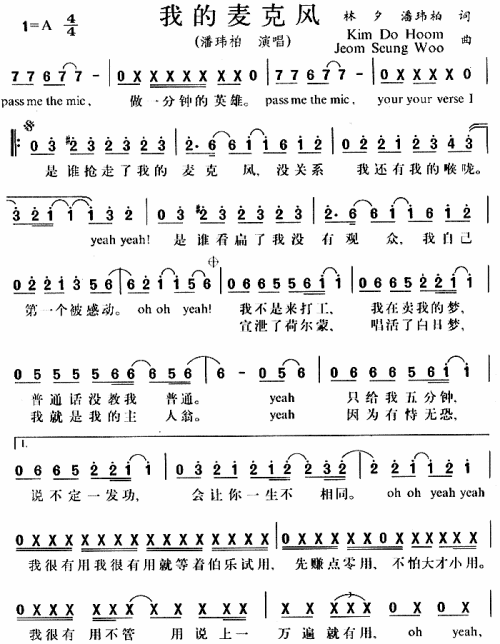 我的麦克风
1=A 4/4
(潘玮柏 演唱)
林夕 潘玮柏 词
Kim Do Hoom
Jeom Seung Woo 曲
7 7 6 7 7 - | 0 X X X X X X X | 7 7 6 7 7 - | 0 X X X X 0
pass me the mic, 做一分钟的英雄。 pass me the mic, your your verse I
0 3 #2 3 2 3 2 3 | 2· 6 6 1 1 6 1 2 | 0 2 2 3 2 3 4 3
是谁抢走了我的 麦克 风, 没关系 我还有我的喉咙。
3 2 1 1 1 3 2 | 0 3 #2 3 2 3 2 3 | 2· 6 6 1 1 6 1 2
yeah yeah! 是谁看扁了我没 有观 众, 我自己
0 2 2 1 3 5 6 6 2 1 1 5 6 | 0 6 6 5 5 6 1 1 | 0 6 6 5 2 2 1 1
第一个被感动。 oh oh yeah! 我不是来打工, 我在卖我的梦,
宣泄了荷尔蒙, 唱活了白日梦,
0 5 5 5 5 6 5 5 6 | 6 - 0 5 6 | 0 6 6 5 6 1 1
普通话没教我 普通。 yeah 只给我五分钟,
我就是我的主 人翁。 yeah 因为有恃无恐,
1.
0 6 6 5 2 2 1 1 | 0 3 2 1 2 1 2 3 2 | 2 2 1 2 1 2
说不定一发功, 会让你一生不 相同。 oh oh yeah yeah
0 X X X X X X X X X X X X X X X | 0 X X X X X 0 X X X X X X
我很有用我很有用就等着伯乐试用, 先赚点零用, 不怕大才小用。
0 X X X X X X | X X X X X | X X X X X X
我很有 用不管 用说上一 万遍就有用。 oh yeah,